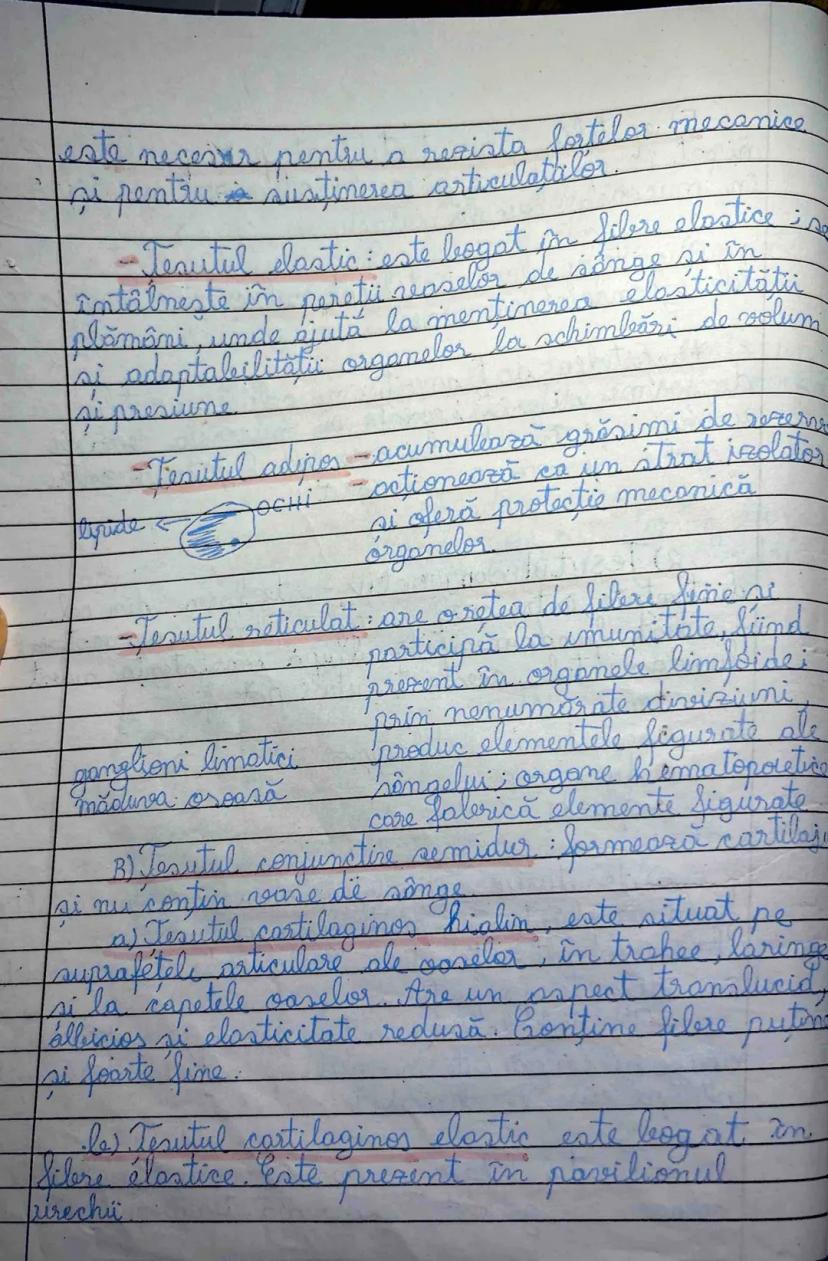 este necesar pentru a rezista forțelor mecanice
și pentru susținerea articulațiilor.
- Țesutul elastic : este bogat în fibre elastice ; se
întâlnește în pereții vaselor de sânge și în
plămâni, unde ajută la menținerea elasticității
și adaptabilității organelor la schimbări de volum
și presiune.
- Țesutul adipos - acumulează grăsimi de rezervă
- acționează ca un strat izolator
lipide OCHI și oferă protecție mecanică
organelor.
- Țesutul reticulat : are o rețea de fibre fine și
participă la imunitate, fiind
prezent în organele limfoide ;
prin nenumărate diviziuni,
ganglioni limatici produc elementele figurate ale
măduva osoasă sângelui ; organe hematopoietice
care fabrică elemente figurate
B) Țesutul conjunctiv semidur : formează cartilaj
și nu conțin vase de sânge
a) Țesutul cartilaginos hialin, este situat pe
suprafețele articulare ale oaselor, în trahee, laringe
și la capetele oaselor. Are un aspect translucid,
albicios și elasticitate redusă. Conține fibre puține
și foarte fine.
b) Țesutul cartilaginos elastic este bogat în
fibre elastice. Este prezent în pavilionul
urechii